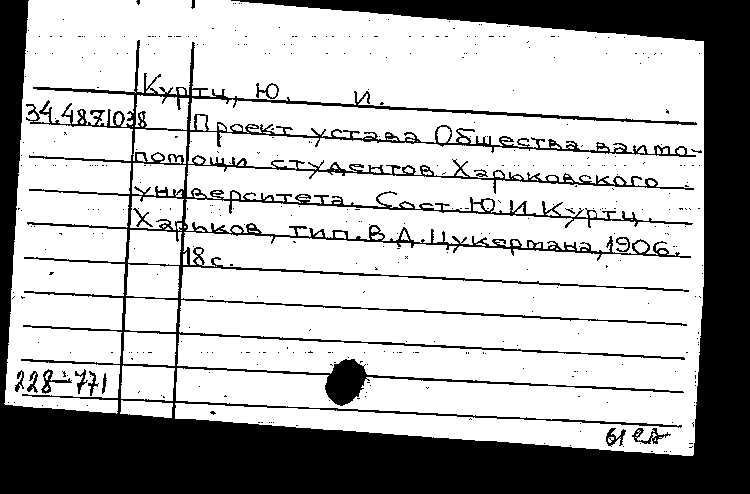 Куртц, Ю. И.
34.48.7.1038
Проект устава Общества ваимо-
помощи студентов Харьковского
университета. Сост. Ю.И.Куртц.
Харьков, тип. В.Д.Цукермана, 1906.
18 с.
228-771
61